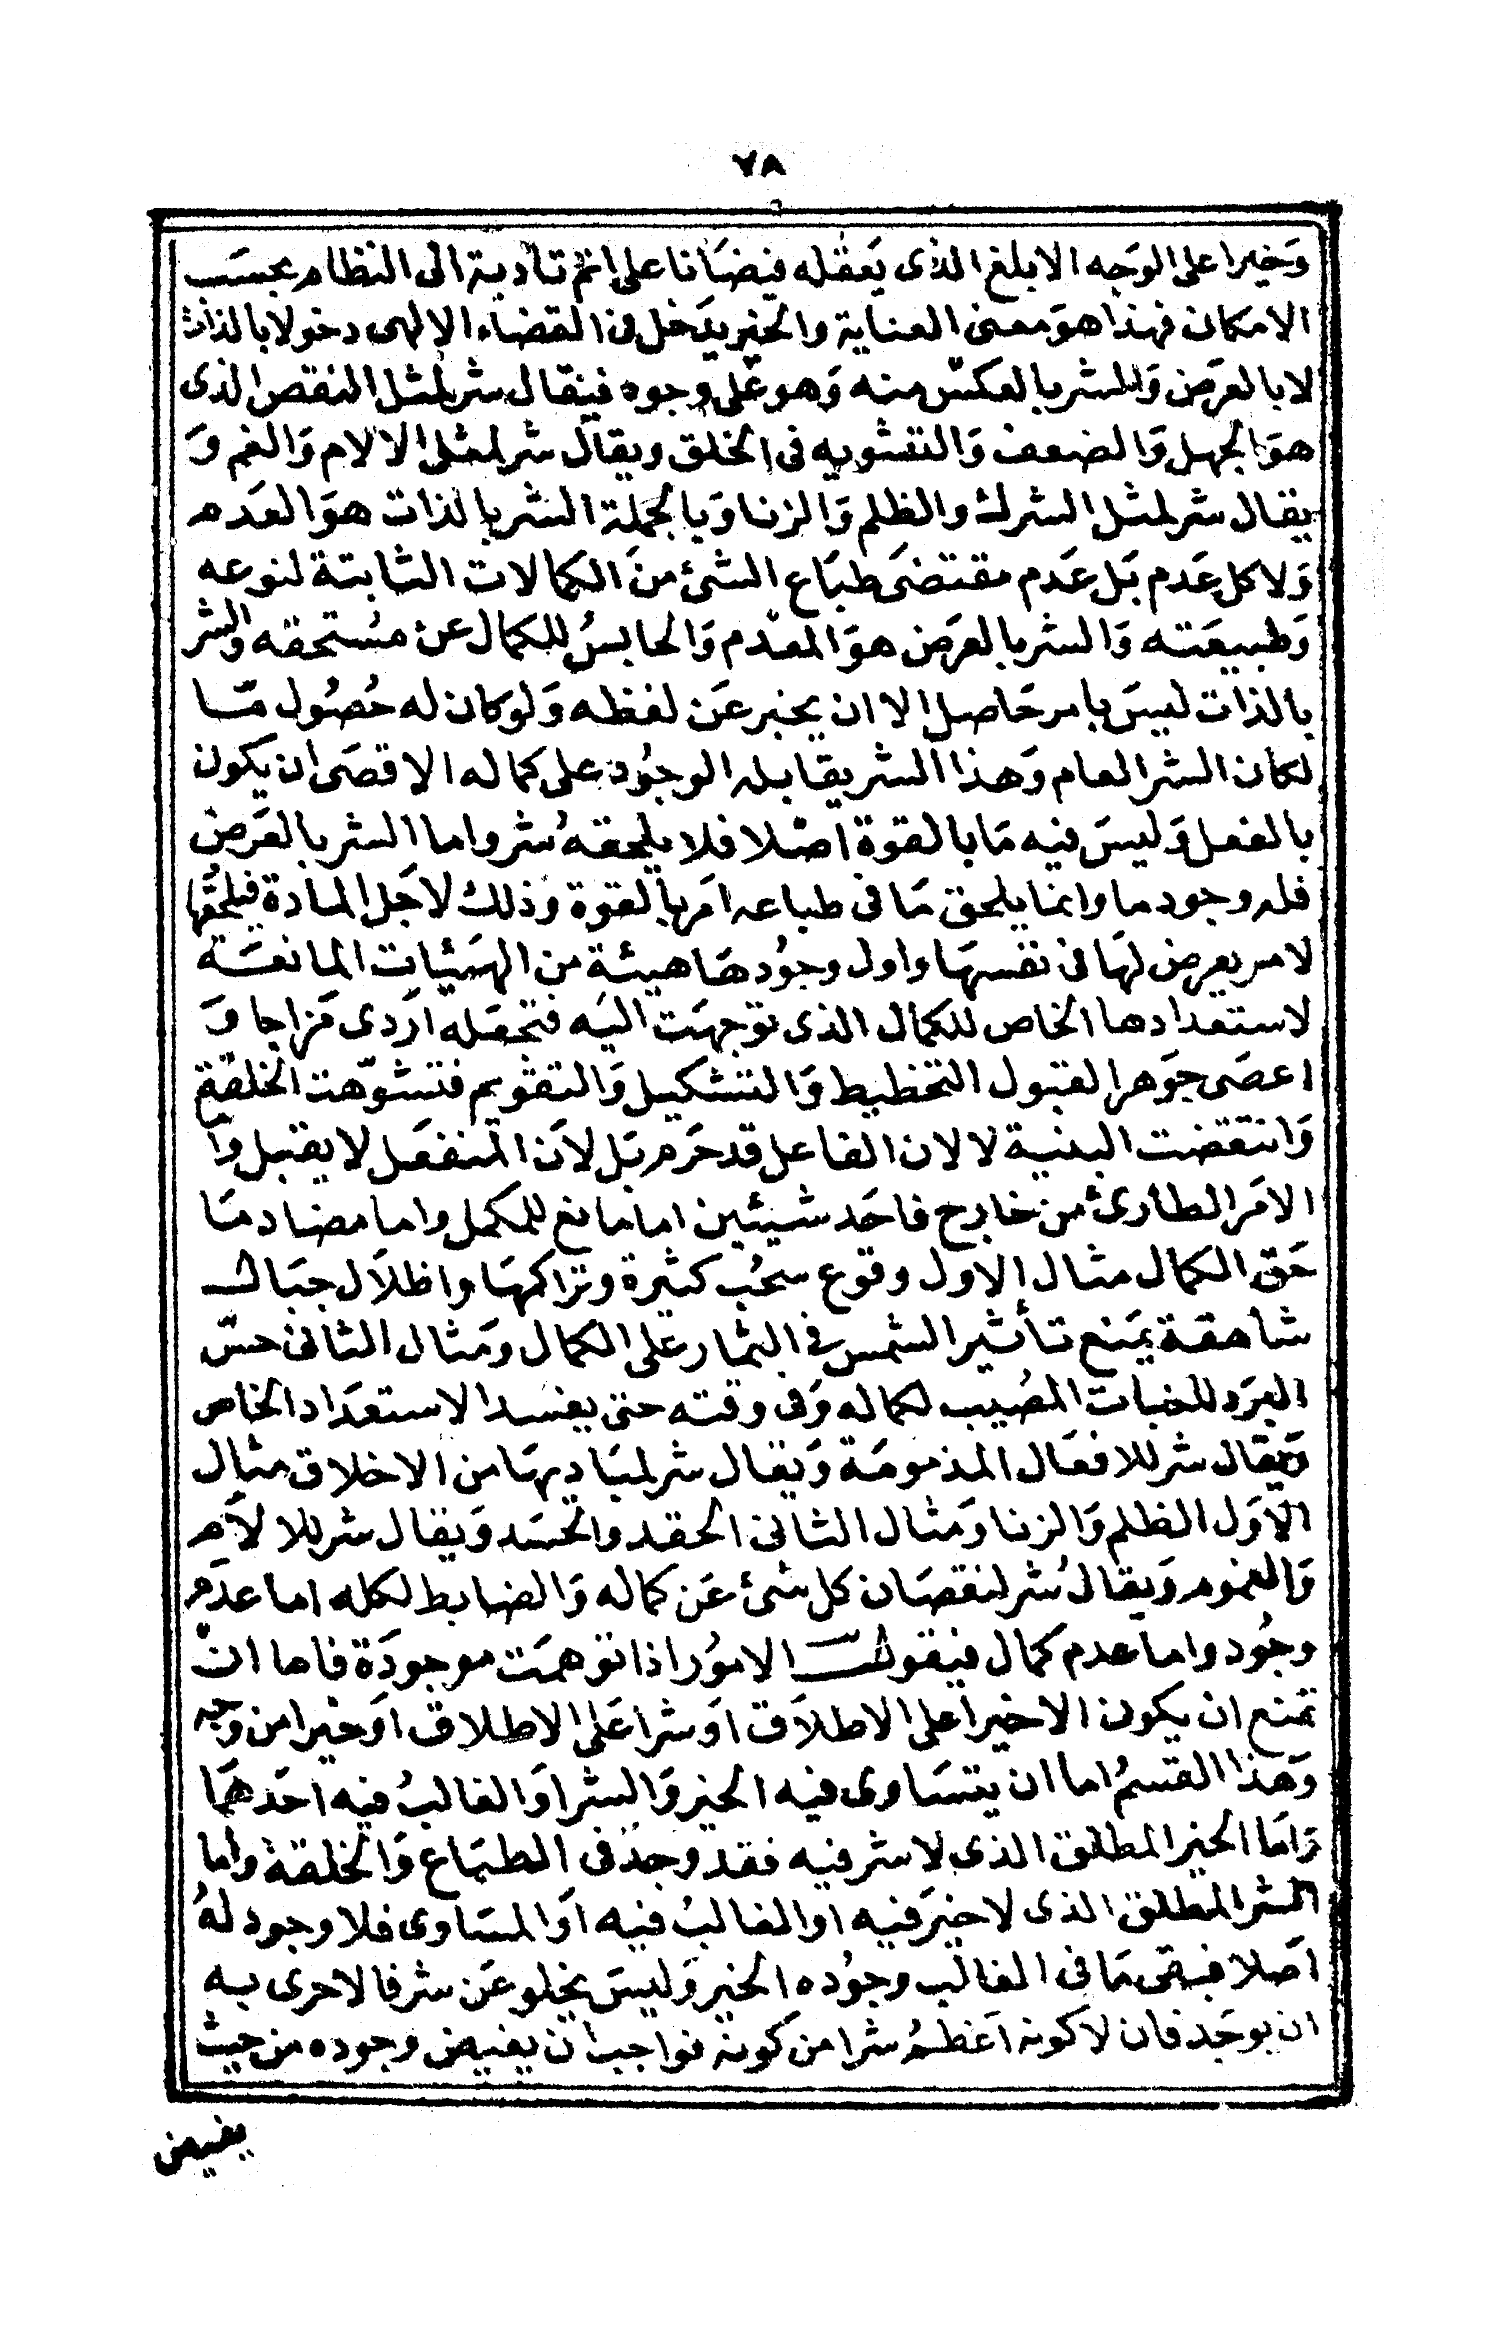 ٧٨
وَخيرا على الوَجه الابلغ الذى يَعقله فيضَانا على اتم تأدية الى النظام بحسَب
الامكان فهذا هوَ معنى العناية والخير يدَخل فى القضاء الالهى دخولا بالذات
لا بالعرَض وَالشر بالعكس منه وَهو على وجوه فيقال شر لمثل النقص الذى
هوَ الجهل وَالضعف وَالتشويه فى الخلق ويقال شر لمثل الالام وَالغم وَ
يقال شر لمثل الشرك والظلم وَالزنا وَبالجملة الشر بالذات هوَ العدَم
وَلا كل عَدم بَل عَدم مقتضىَ طبَاع الشئ منَ الكمالات الثابتة لنوعه
وَطبيعَته وَالشر بالعرَض هوَ المعدم وَالحابسُ للكمال عن مسُتحقه وَالشر
بالذات ليسَ بامر حَاصل الا ان يخبر عَن لفظه وَلو كان له حُصُول مّا
لكان الشر العام وَهذا الشر يقابله الوجُود على كماله الاقصىَ ان يكون
بالفعل وَليسَ فيه مَا بالقوة اصَلا فلا يلحقهُ شر واما الشر بالعَرَض
فله وجود ما وانما يلحق مَا فى طباعه امَر بالقوة وَذلك لاجَل المادة فيلحقها
لامر يعرض لهَا فى نفسهَا واول وجوُدهَا هيئة من الهيَئات المانعَة
لاستعدادها الخاص للكمال الذى توَجهَت اليَه فتجعَله اردَى مَزاجا وَ
اعصَى جوَهرا لقبول التخطيط وَالتشكيل وَالتقويم فتشوّهت الخلقة
وَانتقضت البنية لا لان الفاعل قد حَرم بَل لاَن المنفعَل لا يقبل وَا
الامَر الطارئ من خارج فاحَد شيئين اما مانع للمكمل واما مضاد مَا
حَق الكمال مثال الاول وقوع سحُب كثيرة وتراكمهَا واظلاَل جبَال
شاهقة يمَنع تأثير الشمس فى الثمار على الكمال ومَثال الثانى حسّ
البرَد للنبات المصُيب لكماله وَفى وقته حتى يفسد الاستعدَاد الخاص
وَيقال شر للافعَال المذمومَة وَيقال شر لمبَاديهَا من الاخلاق مثال
الاوَل الظلم وَالزنا ومَثال الثانى الحقد والحسَد وَيقال شر للالاَم
وَالغموم وَيقالُ شر لنقصَان كل شئ عَن كماله وَالضابط لكله اما عدَم
وجُود واما عدم كمال فيقول الامُور اذا توهمَت موجودَة فاما ان
تمنع ان يكون الا خيرا على الاطلاَق اوَ شرا عَلى الاطلاق اوَ خيرا من وَجه
وَهذا القسمُ اما ان يتسَاوى فيه الخير وَالشر اوَ الغالبُ فيه احَدهمَا
وَامَا الخير المطلق الذى لا شر فيه فقد وجدَ فى الطبَاع وَالخلقة واما
الشر المطلق الذى لا خيرَ فيه او الغالبُ فيه اوَ المسَاوى فلا وجود لهُ
اصَلا فبقى مَا فى الغالب وجوُده الخير وَليسَ يخلو عَن شر فالاحرى به
ان يوجَد فان لا كونه اَعظمُ شرا من كونه فواجب ان يفيض وجوده من حيث
يفيض